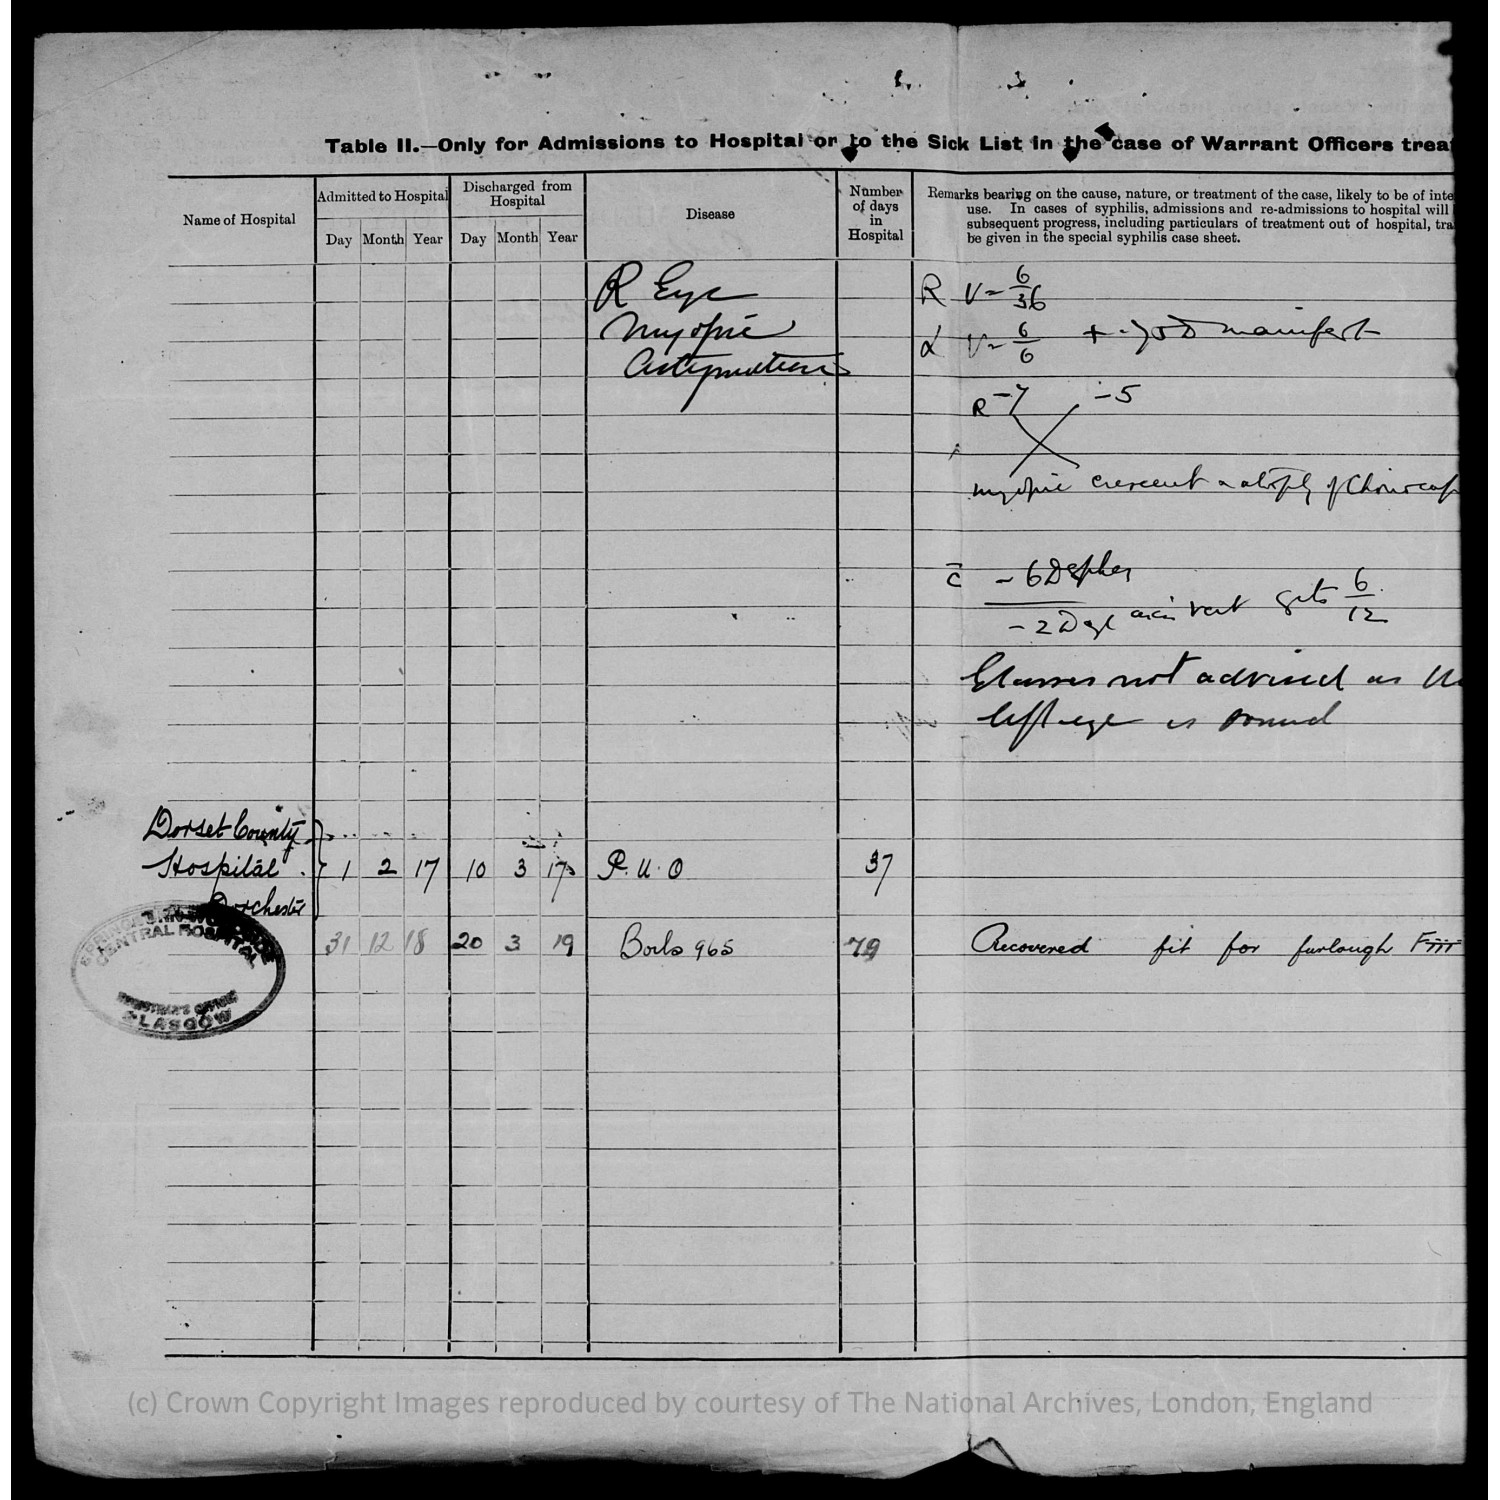 Table II.—Only for Admissions to Hospital or to the Sick List in the case of Warrant Officers trea
Name of Hospital
Admitted to Hospital
Day Month Year
Discharged from
Hospital
Day Month Year
Disease
Number
of days
in
Hospital
Remarks bearing on the cause, nature, or treatment of the case, likely to be of inte
use. In cases of syphilis, admissions and re-admissions to hospital will
subsequent progress, including particulars of treatment out of hospital, tra
be given in the special syphilis case sheet.
R Eye
Myopic
Astigmatism
R V = 6/36
L V = 6/6 + manifest
R -7 -5
myopic crescent atrophy of
c̄ - 6 D spher
- 2 D axis vert gets 6/12
Glasses not advised as
left eye is sound
Dorset County
Hospital 1 2 17 10 3 17 P.U.O 37
Dorchester
31 12 18 20 3 19 Boils 965 79 Recovered fit for furlough
CENTRAL HOSPITAL
REGISTRAR'S OFFICE
GLASGOW
(c) Crown Copyright Images reproduced by courtesy of The National Archives, London, England